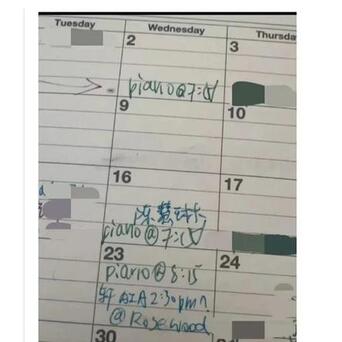 Tuesday Wednesday Thursda
2 3
piano@7:15
9 10
16 17
陈慧
piano@7:15
23 24
piano@8:15
轩 AIA 2:30pm?
@Rosewood
30